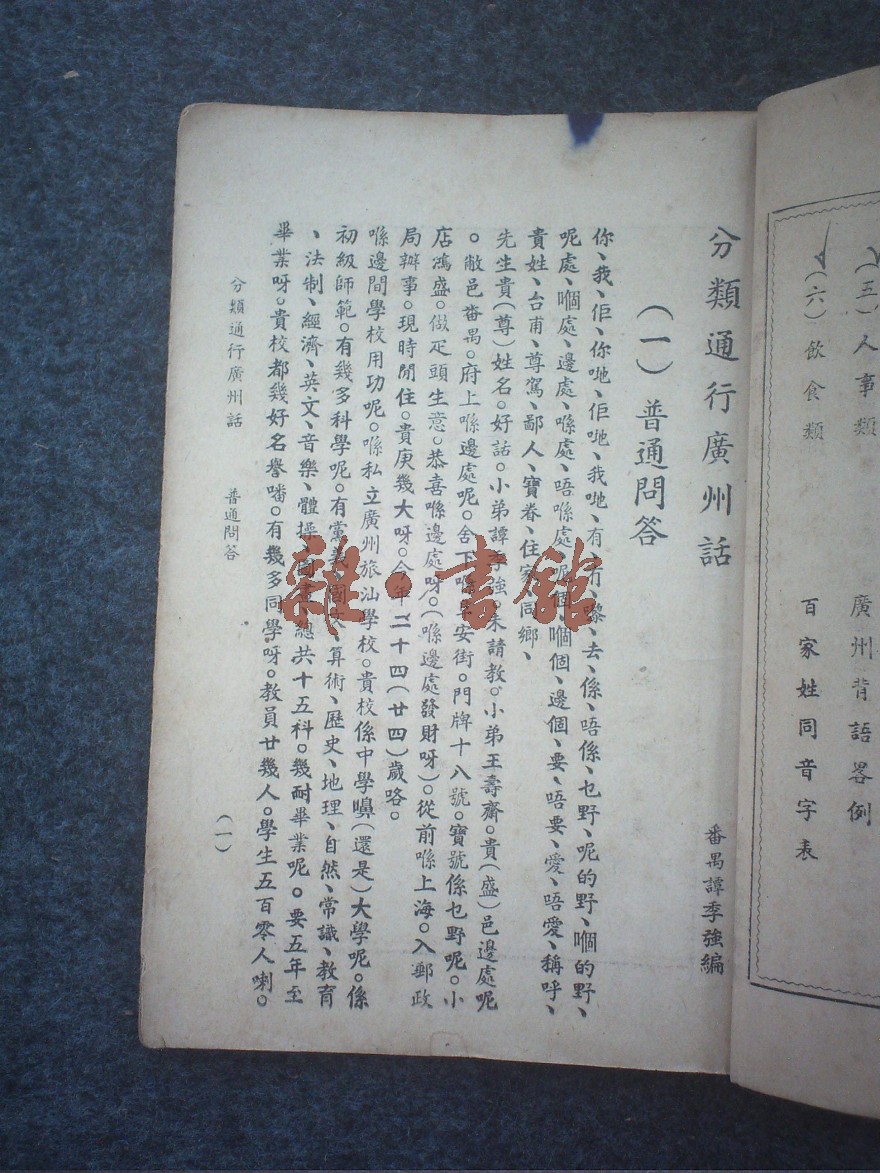 (三)人事類 廣州背語畧例
(六)飲食類 百家姓同音字表
分類通行廣州話
番禺譚季強編
(一)普通問答
你、我、佢、你哋、佢哋、我哋、有、冇、嚟、去、係、唔係、乜野、呢的野、嗰的野、
呢處、嗰處、邊處、喺處、唔喺處、呢個、嗰個、邊個、要、唔要、愛、唔愛、稱呼、
貴姓、台甫、尊駕、鄙人、寶眷、住家、同鄉、
先生貴(尊)姓名。好話。小弟譚季強。未請教。小弟王壽齋。貴(盛)邑邊處呢
。敝邑番禺。府上喺邊處呢。舍下喺 安街。門牌十八號。寶號係乜野呢。小
店鴻盛。做疋頭生意。恭喜喺邊處呀。(喺邊處發財呀)。從前喺上海。入郵政
局辦事。現時閒住。貴庚幾大呀。今年二十四(廿四)歲咯。
喺邊間學校用功呢。喺私立廣州旅汕學校。貴校係中學嚊(還是)大學呢。係
初級師範。有幾多科學呢。有黨義、國文、算術、歷史、地理、自然、常識、教育
、法制、經濟、英文、音樂、體操、圖畫、總共十五科。幾耐畢業呢。要五年至
畢業呀。貴校都幾好名譽噃。有幾多同學呀。教員廿幾人。學生五百零人喇。
分類通行廣州話 普通問答
(一)
雜·書館